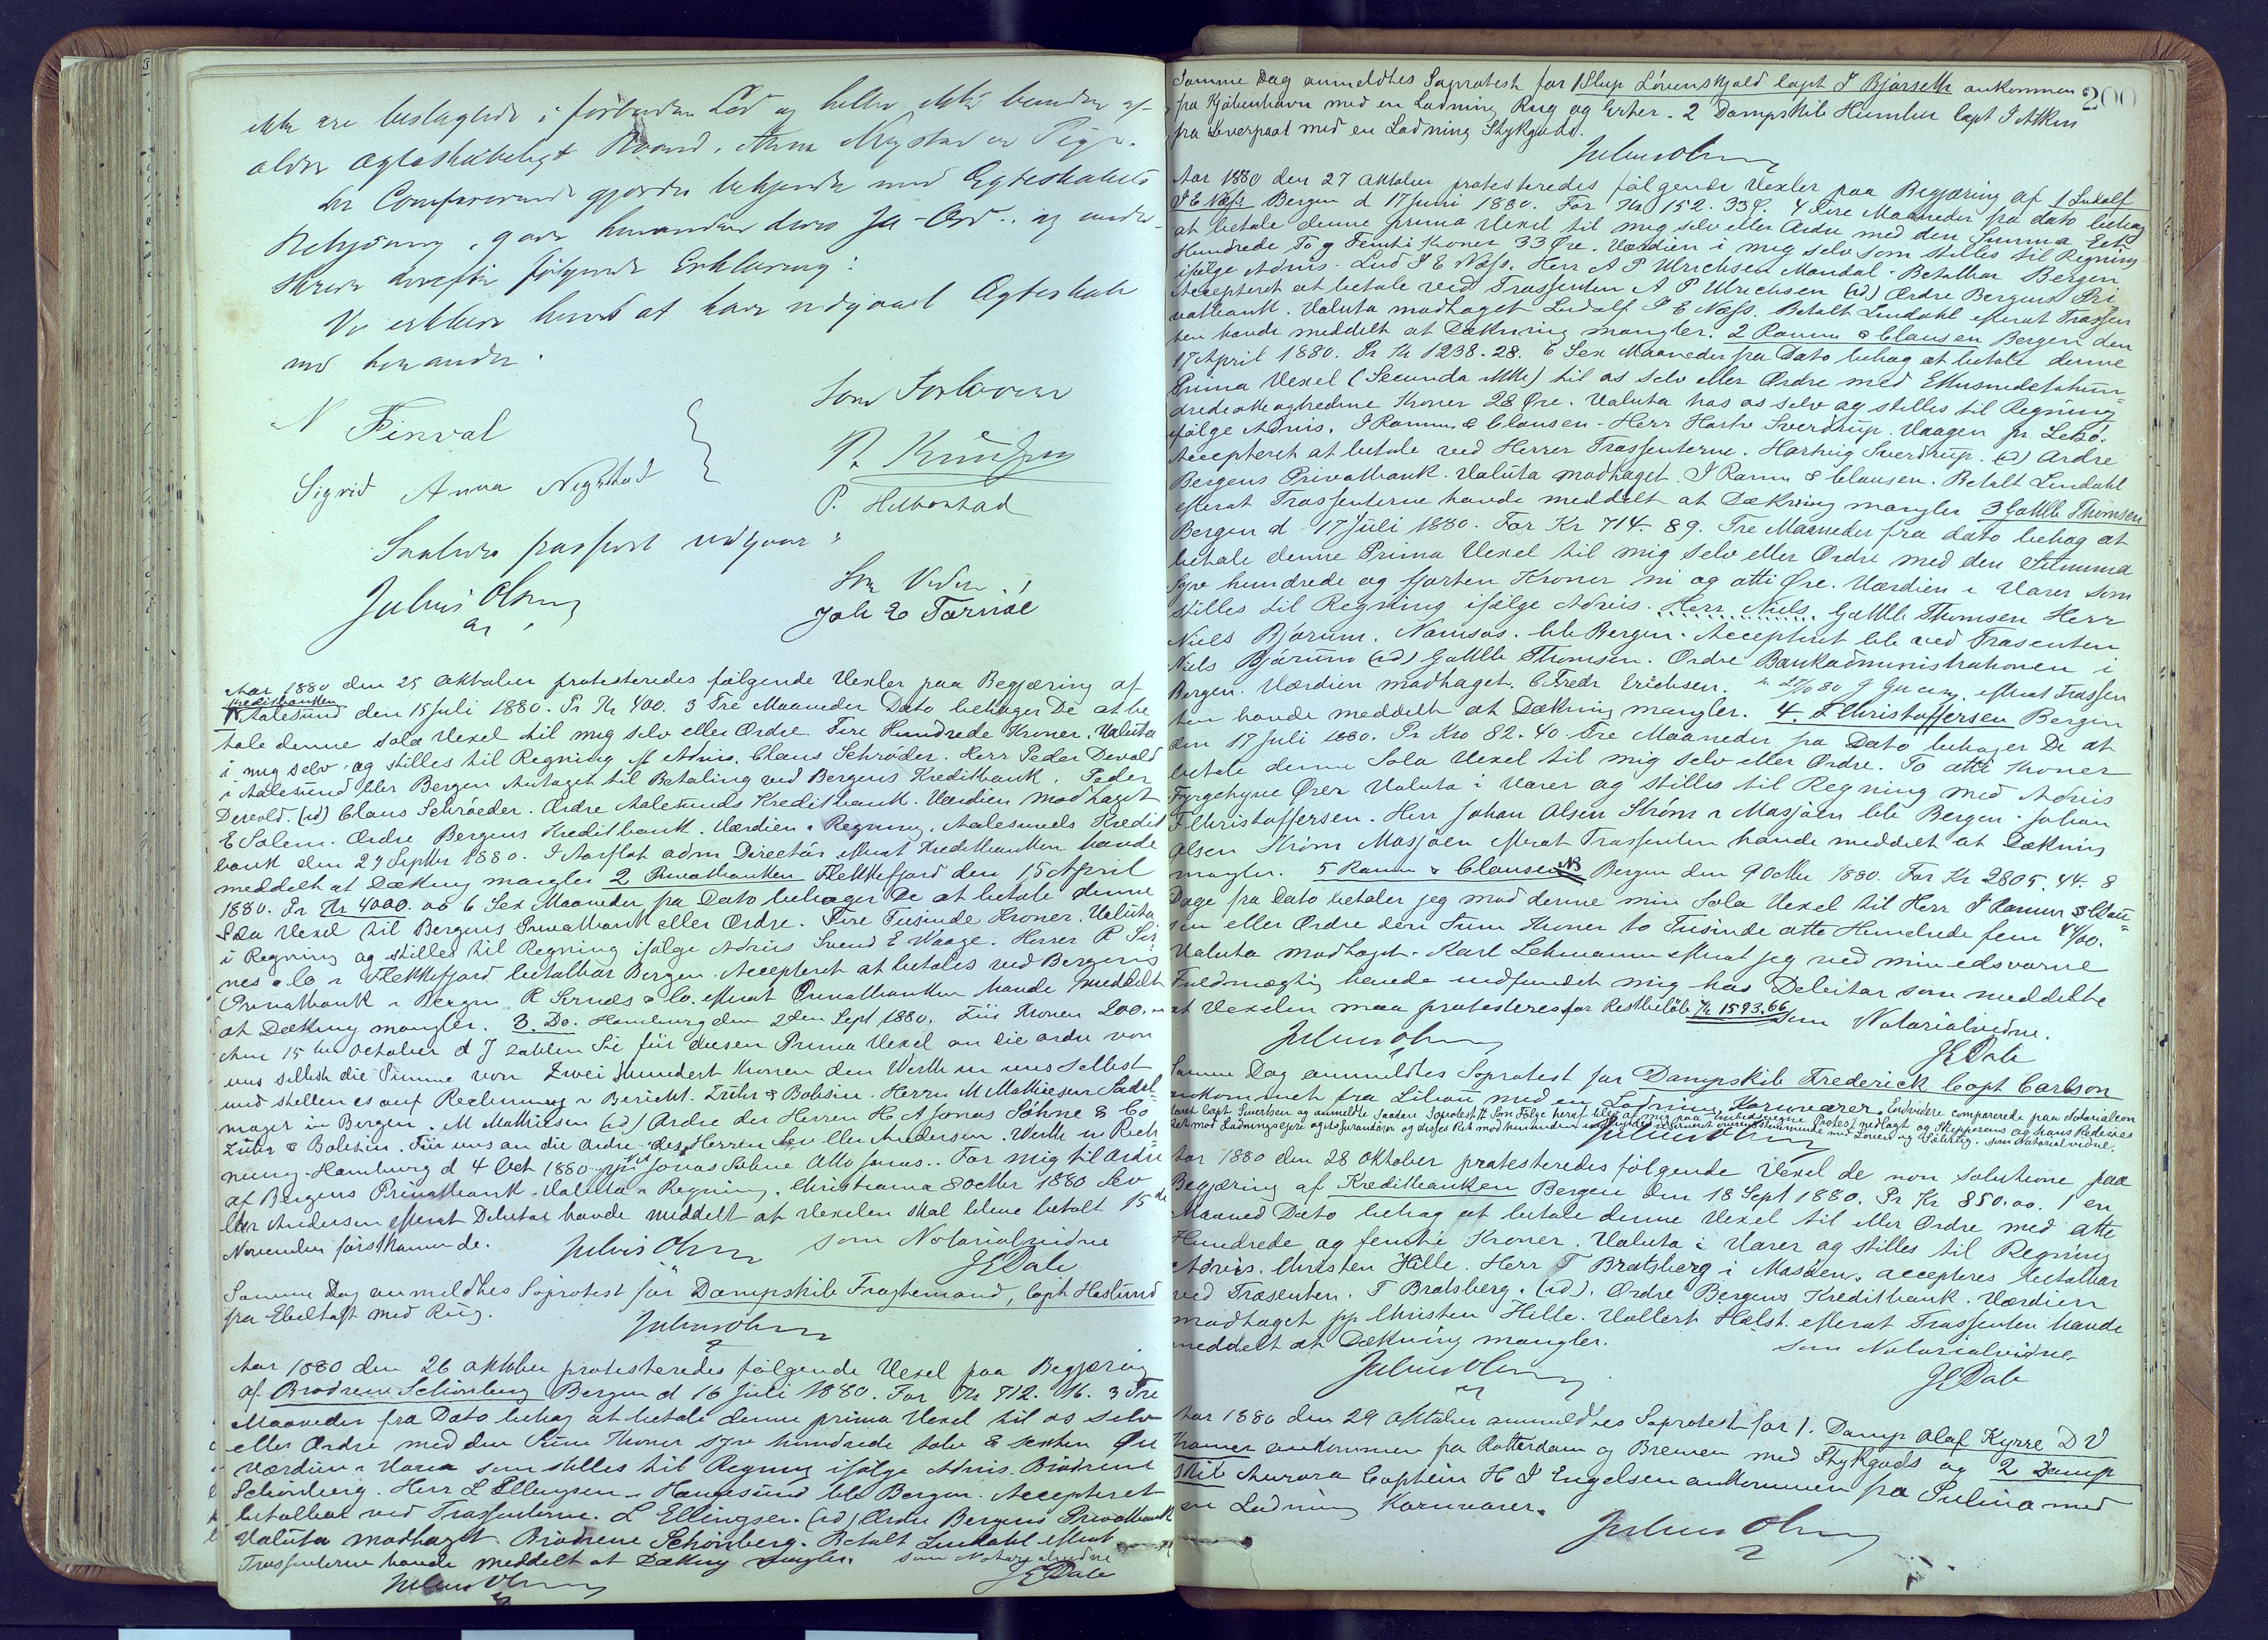 ikke ere beslægtede i forbuden Led og heller ikke bunden af
ældre ægteskabeligt Baand. Anna Nygstad er Pige.
De Comparerende gjordes bekjendt med Egteskabets
Betydning, gave hinanden deres Ja-Ord, og under-
skrev derefter følgende Erklæring:
Vi erklære herved at have indgaaet Ægteskab
med hinanden.
Som Forlovere
N Finval
P. Knudsen
Sigrid Anna Nygstad
P. Helbostad
passeret udgaar
Som Vidne
Julius Olsen
Joh E Tornöe
Aar 1880 den 25 Oktober protesteredes følgende Vexler paa Begjæring af
Kreditbanken
1 Aalesund den 15 Juli 1880. Pr Kr 400. 3 Tre Maaneder Dato behager De at be
tale denne sola Vexel til mig selv eller Ordre Fire Hundrede Kroner. Valuta
i mig selv og stilles til Regning Advis. Claus Schrøder. Herr Peder Devold
i Aalesund eller Bergen Antaget til Betaling ved Bergens Kreditbank. Peder
Devold. (id) Claus Schrøeder. Ordre Aalesunds Kreditbank. Værdien modtaget
E Solem. Ordre Bergens Kreditbank. Værdien i Regning. Aalesunds Kredit
bank den 29 Septbr 1880. J Aarflot adm Directør efterat Kreditbanken havde
meddelt at Dækning mangler 2 Privatbanken Flekkefjord den 15 April
1880. Pr Kr 4000.00 6 Sex Maaneder fra Dato behager De at betale denne
Sola Vexel til Bergens Privatbank eller Ordre. Fire Tusinde Kroner. Valuta
i Regning og stilles til Regning ifølge Advis Svend E Waage. Herrer R Sir
nes & Co i Flekkefjord betalbar Bergen. Accepteret at betales ved Bergens
Privatbank i Bergen R Sirnes & Co. efterat Privatbanken havde meddelt
at Dækning mangler. 3. Do. Hamburg den 2den Sept 1880. Für Kronen 200.
Am 15 ten October d J zahlen Sie für diesen Prima Vexel an die ordre von
uns selbst die Summe von Zwei Hundert Kronen den Werth in uns selbst
und stellen es auf Rechnung Bericht. Zühr & Bolsin. Herrn M Mathiesen Sadel
mager in Bergen. M Mathiesen (id) Ordre der Herren H A Jonas Söhne & Co
Zühr & Bolsin. Für uns an die ordre des Herren Andersen. Werth in Rech
nung. Hamburg d 4 Oct 1880 Jonas Söhne Otto Jonas.. For mig til Ordre
af Bergens Privatbank. Valuta i Regning. Christiania 8 Octbr 1880
Andersen efterat Debitor havde meddelt at Vexelen skal blive betalt 15de
November førstkommende. Julius Olsen som Notarialvidne
J E Dale
Samme Dag anmeldtes Søprotest for Dampskib Fragtemand, Capt Haslund
fra Ebeltoft med Rug.
Julius Olsen
Aar 1880 den 26 Oktober protesteredes følgende Vexel paa Begjæring
af Brødrene Schönberg Bergen d 16 Juli 1880. For Kr 712. 16. 3 Tre
Maaneder fra Dato behag at betale denne prima Vexel til os selv
eller Ordre med den Sum Kroner syv hundrede tolv & sexten Øre
Værdien i Varer som stilles til Regning ifølge Advis. Brødrene
Schönberg. Herr L Ellingsen i Haugesund Bergen. Accepteret
betalbar ved Trassenterne. L Ellingsen. (id) Ordre Bergens Privatbank
Valuta modtaget. Brødrene Schönberg. Betalt Lindahl efterat
Trassenterne havde meddelt at Dækning mangler. som Notarialvidne
Julius Olsen J E Dale
200
Samme Dag anmeldtes Søprotest for 1 Slup Løvenskjold Capt J Bjørseth ankommen
fra Kjøbenhavn med en Ladning Rug og Erter. 2 Dampskib Humber Capt J Atkin
fra Liverpool med en Ladning Stykgods.
Julius Olsen
Aar 1880 den 27 Oktober protesteredes følgende Vexler paa Begjæring af 1 Ludolf
J E Næss Bergen d 17 Juni 1880. For Kr 152. 33 Ø. 4 Fire Maaneder fra dato behag
at betale denne prima Vexel til mig selv eller Ordre med den Summa Eet
Hundrede To og Femti Kroner 33 Øre. Værdien i mig selv som stilles til Regning
ifølge Advis. Lud J E Næss. Herr A P Ulrichsen Mandal. Betalbar Bergen
Accepteret at betale ved Trassenten A P Ulrichsen (id) Ordre Bergens Pri
vatbank. Valuta modtaget Ludolf J E Næss. Betalt Lindahl efterat Trassen
ten havde meddelt at Dækning mangler. 2 Ramm & Clausen Bergen den
17 April 1880. Pr Kr 1238.28. 6 Sex Maaneder fra Dato behag at betale denne
Prima Vexel (Secunda ikke) til os selv eller Ordre med Ettusindetohun
drede otte og tredive Kroner 28 Øre. Valuta hos os selv og stilles til Regning
ifølge Advis. J Ramm & Clausen. Herr Hartv Sverdrup. Vaagen pr Lekø.
Accepteret at betale ved Herrer Trassenterne. Hartvig Sverdrup. (id) Ordre
Bergens Privatbank. Valuta modtaget. J Ramm & Clausen. Betalt Lindahl
efterat Trassenterne havde meddelt at Dækning mangler 3 Gottlb Thomsen
Bergen d 17 Juli 1880. For Kr 714. 89. Tre Maaneder fra dato behag at
betale denne Prima Vexel til mig selv eller Ordre med den Summa
Syv hundrede og fjorten Kroner ni og otti Øre. Værdien i Varer som
stilles til Regning ifølge Advis. Herr Niels Gottlb Thomsen Herr
Niels Bjørum. Namsos. Bergen. Accepteret ved Trasenten
Niels Bjørum (id) Gottlb Thomsen. Ordre Bankadministrationen i
Bergen. Værdien modtaget. C Fredr Erichsen. 27/10 80 efterat Trassen
ten havde meddelt at Dækning mangler. 4. F Christoffersen Bergen
den 17 Juli 1880. Pr Kro 82.40 Tre Maaneder fra Dato behager De at
betale denne Sola Vexel til mig selv eller Ordre. To otti Kroner
Fyrgetyve Ører Valuta i Varer og stilles til Regning med Advis
F Christoffersen. Herr Johan Olsen Strøm i Mosjøen Bergen. Johan
Olsen Strøm Mosjøen efterat Trassenten havde meddelt at Dækning
mangler. 5 Ramm & Clausen NB Bergen den 9 Octbr 1880. For Kr 2805.44. 8
Dage fra Dato betaler jeg mod denne min Sola Vexel til Herr J Ramm & Clau
sen eller Ordre den Sum Kroner to Tusinde otte Hundrede fem 44/00.
Valuta modtaget. Karl Lehmann efterat jeg ved min edsvorne
Fuldmægtig havde indfundet mig hos Debitor som meddelte
at Vexelen maa protesteres for Restbeløb Kr 1593.66
Som Notarialvidne.
Julius Olsen
J E Dale
Samme Dag anmeldtes Søprotest for Dampskib Frederick Capt Carlson
ankommet fra Libau med en Ladning Kornvarer. Endvidere comparerede paa Notarialcon
toret Capt Sivertsen og anmeldte saadan Søprotest. Som Følge heraf blev af mig paa Protest nedlagt og Skipperens og hans Rederies
Ret mod Ladningsejere og Assurandører og disses Ret mod hinanden overensstemmende med Loven og Sølaug. som Notarialvidne.
Julius Olsen
Aar 1880 den 28 Oktober protesteredes følgende Vexel de non solutione paa
Begjæring af Kreditbanken Bergen den 18 Sept 1880. Pr Kr 850.00. 1 en
Maaned Dato behag at betale denne Vexel til eller Ordre med otte
Hundrede og femti Kroner. Valuta i Varer og stilles til Regning
Advis. Christen Hille. Herr T Bratsberg i Mosøen. accepteres betalbar
ved Trasenten. T Bratsberg. (id). Ordre Bergens Kreditbank. Værdien
modtaget pp Christen Hille. Vollert Holst. efterat Trassenten havde
meddelt at Dækning mangler.
som Notarialvidne
Julius Olsen
J E Dale
Aar 1880 den 29 Oktober anmeldtes Søprotest for 1. Damp Olaf Kyrre D V
Kramer ankommen fra Rotterdam og Bremen med Stykgods og 2 Damp
skib Aurora Captein H J Engelsen ankommen fra Sulina med
en Ladning Kornvarer.
Julius Olsen